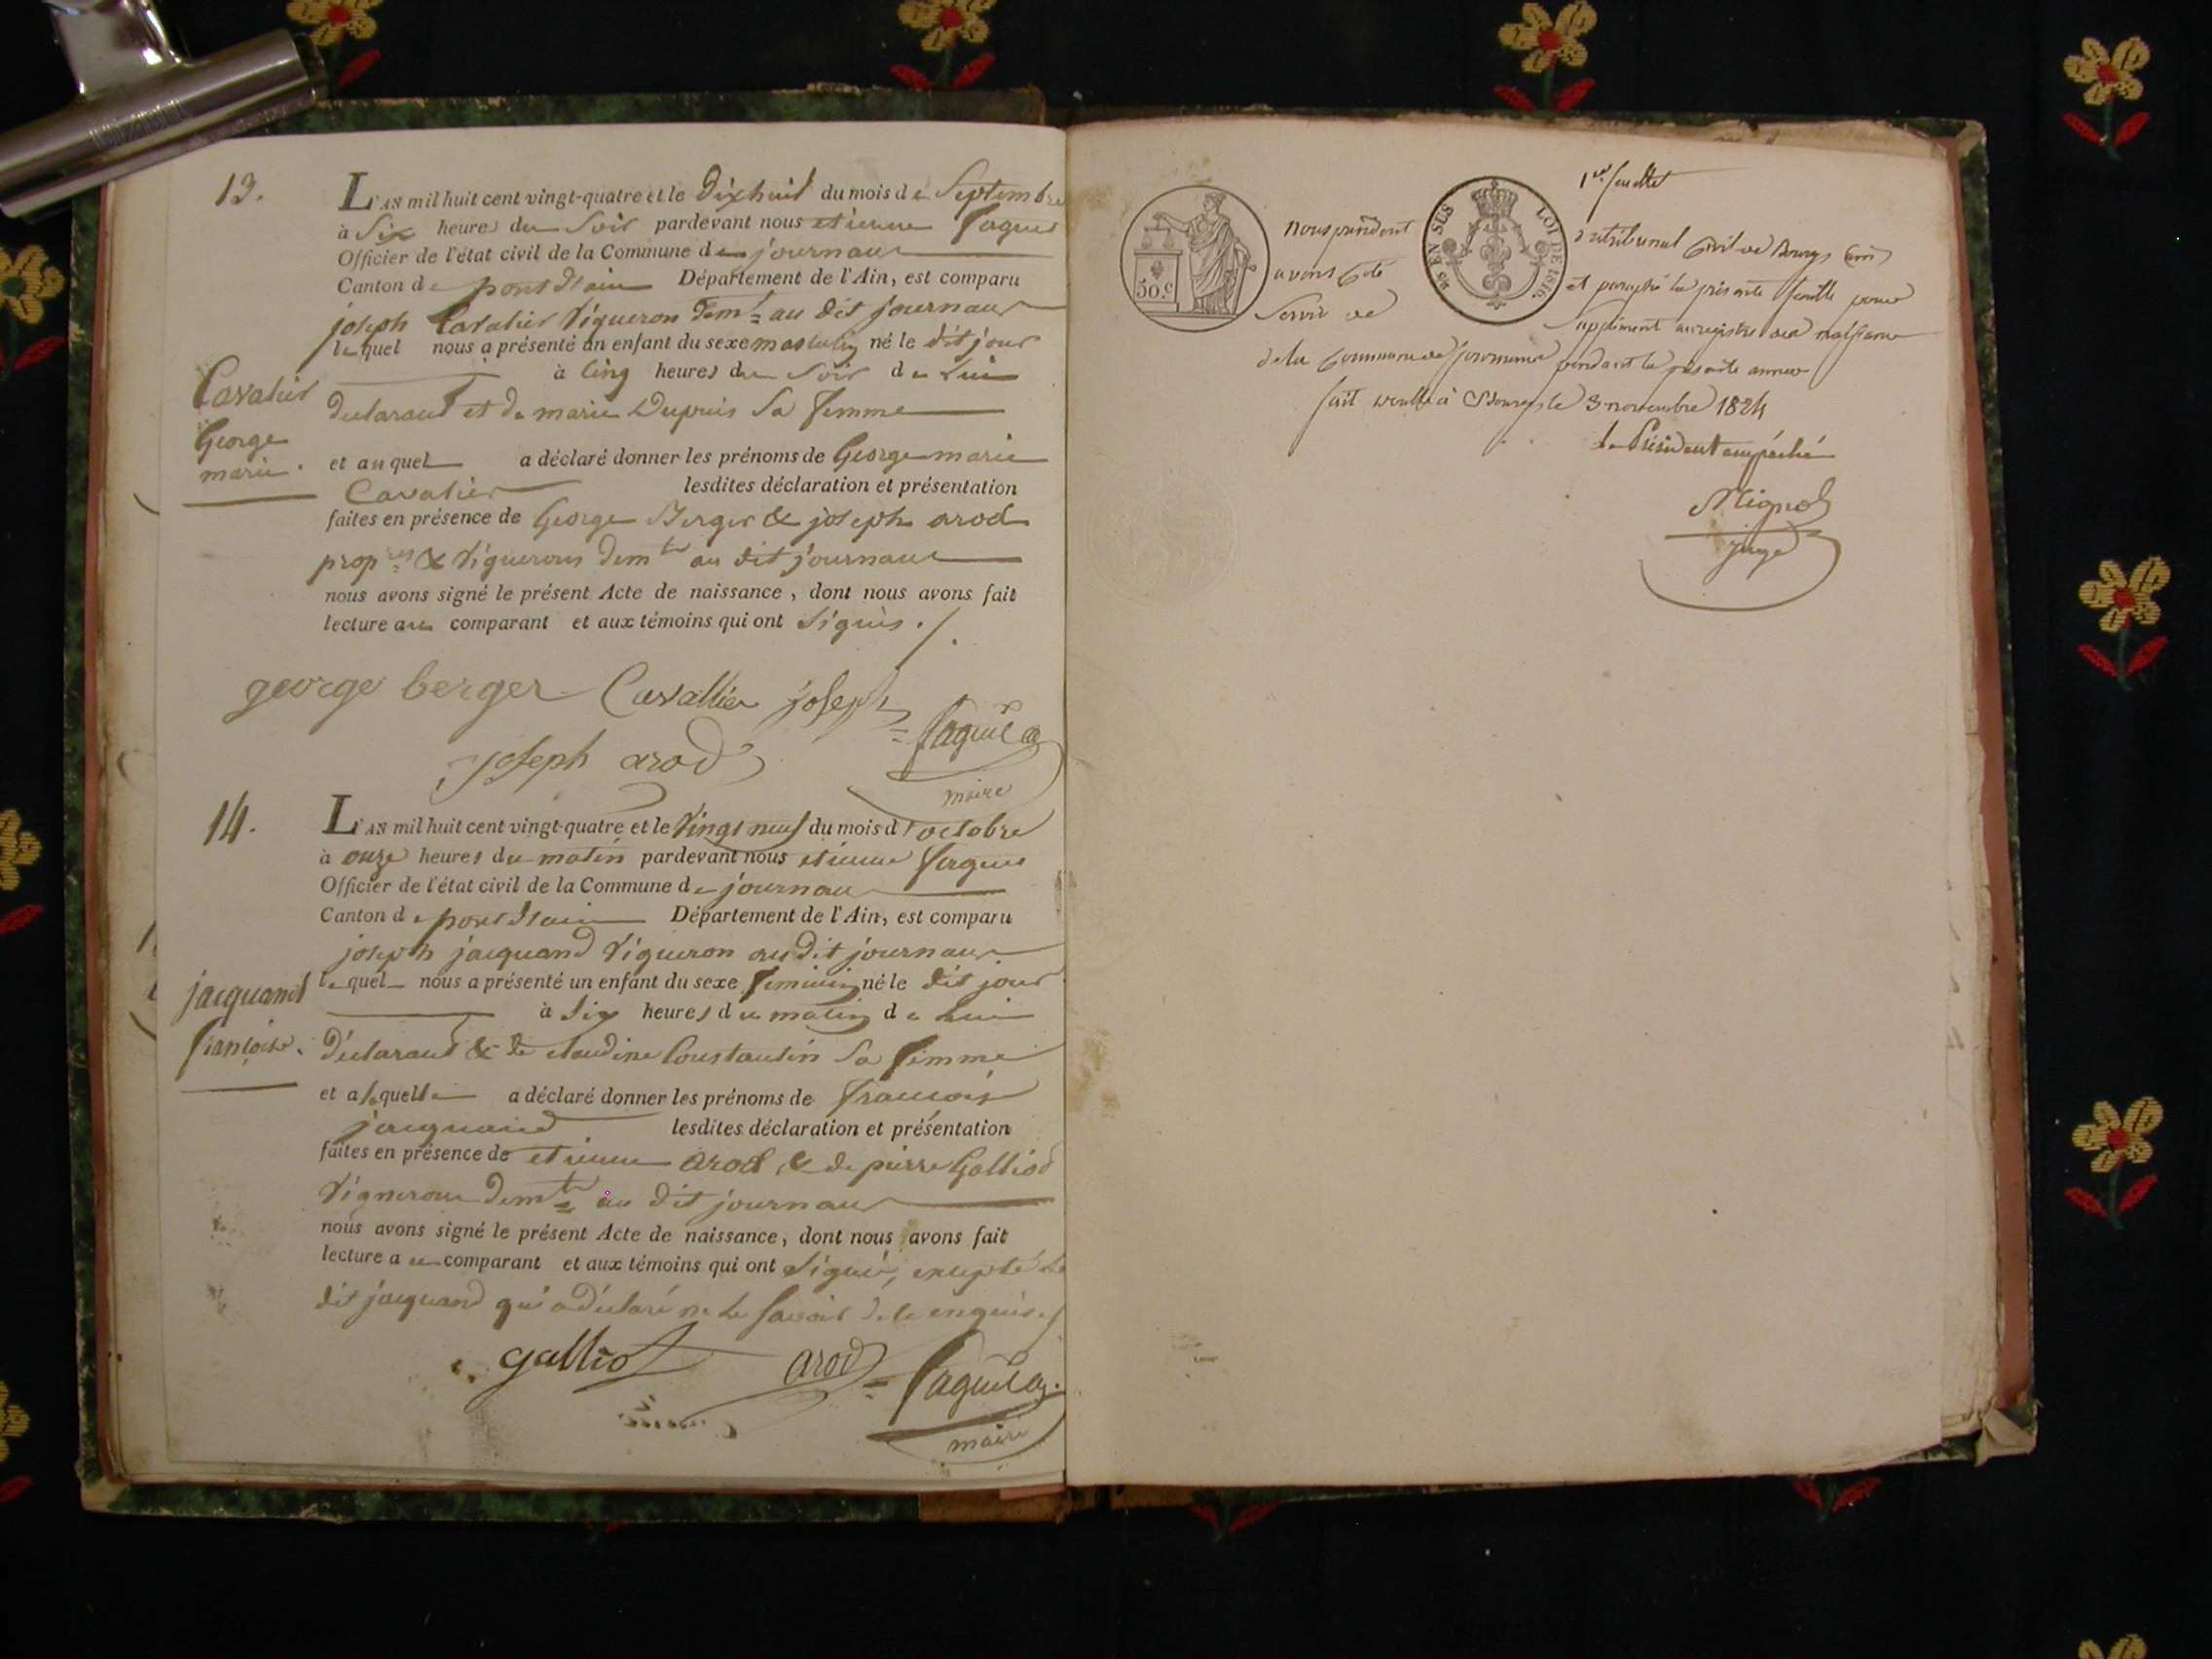 13.
L'AN mil huit cent vingt-quatre et le Dixhuit du mois de Septembre
à Six heures du Soir pardevant nous etienne
Officier de l'état civil de la Commune de journaux
Canton de pont d'ain Département de l'Ain, est comparu
joseph Cavalier Vigneron demt au dit journaux
lequel nous a présenté un enfant du sexe masculin né le dit jour
à Cinq heures du Soir de lui
Cavalier
declarant et de marie Dupuis Sa femme
George
marie.
et auquel a déclaré donner les prénoms de George marie
Cavalier lesdites déclaration et présentation
faites en présence de George Berger & joseph arod
propres & Vignerons demts au dit journaux
nous avons signé le présent Acte de naissance, dont nous avons fait
lecture au comparant et aux témoins qui ont Signés ./.
george berger Cavallier joseph
joseph arod
maire
14.
L'AN mil huit cent vingt-quatre et le Vingt neuf du mois d'octobre
à onze heures du matin pardevant nous etienne
Officier de l'état civil de la Commune de journaux
Canton de pont d'ain Département de l'Ain, est comparu
joseph jacquand Vigneron au dit journaux
jacquand
lequel nous a présenté un enfant du sexe feminin né le dit jour
à Six heures du matin de lui
françoise.
déclarant & de claudine Constantin Sa femme
et a laquelle a déclaré donner les prénoms de francoise
jacquand lesdites déclaration et présentation
faites en présence de etienne arod & de pierre Galliod
Vignerons demts au dit journaux
nous avons signé le présent Acte de naissance, dont nous avons fait
lecture au comparant et aux témoins qui ont Signé, excepté le
dit jacquand qui a déclaré ne le Savoir de ce enquis ./
galliot arod
maire
1er feuillet
50.c
EN SUS
LOI DE 1816.
nous président du tribunal civil de Bourg (ain)
avons coté et paraphé la présente feuille pour
Servir de Supplément au registre des naissances
de la Commune de journaux pendant la présente année
fait à Bourg le 3 novembre 1824
le Président empêché
Mignot
juge